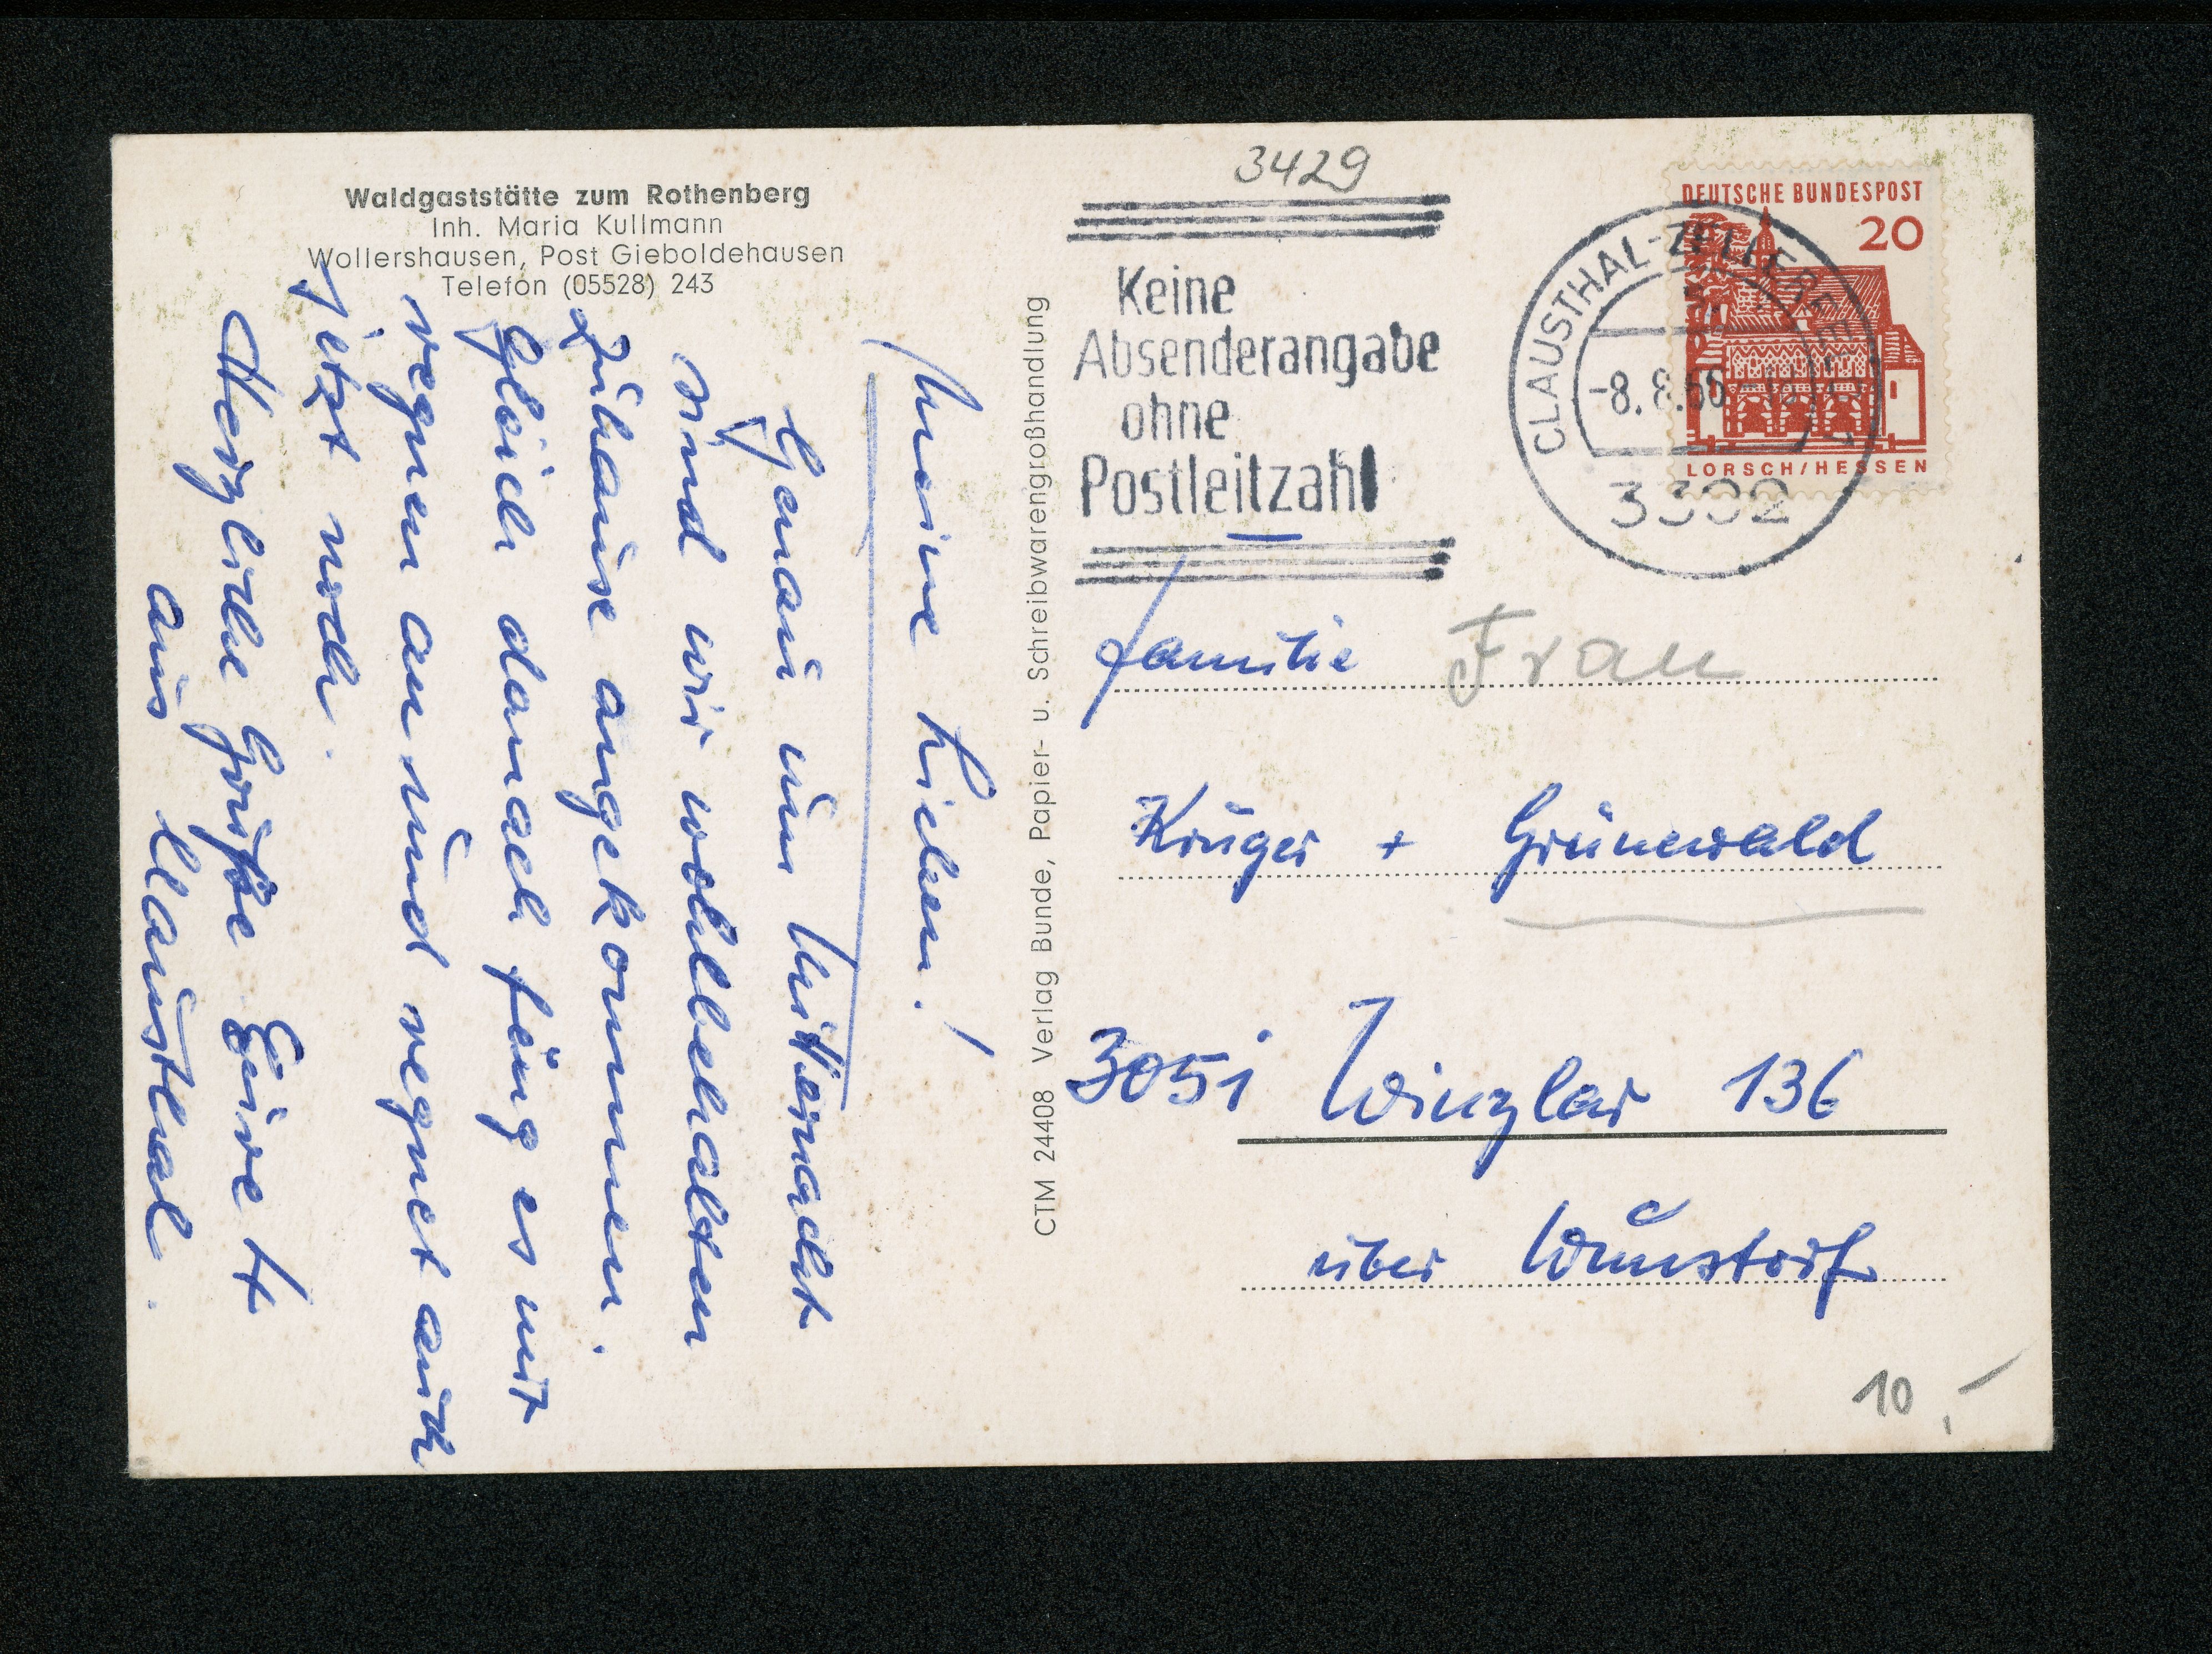 Waldgaststätte zum Rothenberg
Inh. Maria Kullmann
Wollershausen, Post Gieboldehausen
Telefon (05528) 243
Meine Lieben!
Genau um Mitternacht
sind wir wohlbehalten
zuhause angekommen.
Gleich danach fing es mit
regnen an und regnet auch
jetzt noch.
Herzliche Grüße Eure 4
aus Clausthal.
CTM 24408 Verlag Bunde, Papier- u. Schreibwarengroßhandlung
3429
Keine
Absenderangabe
ohne
Postleitzahl
CLAUSTHAL-ZELLERFELD
-8.8.66
3392
DEUTSCHE BUNDESPOST
20
LORSCH/HESSEN
Familie Frau
Krüger + Grünewald
3051 Winzlar 136
über Wunstorf
10,-